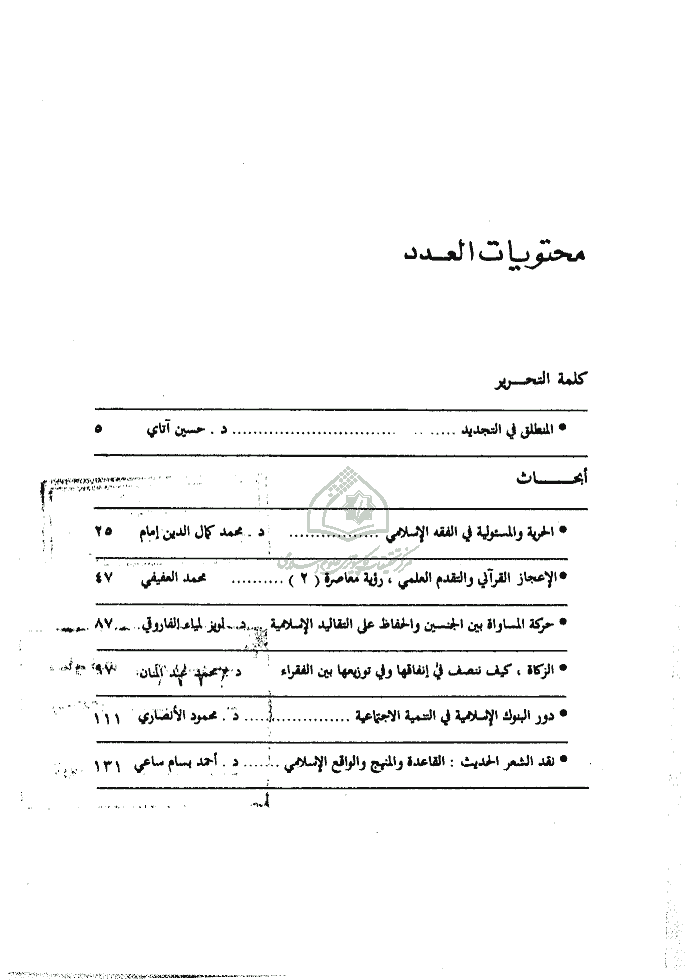 محتويات العدد
كلمة التحرير
● المنطلق في التجديد ..... .. ................................ د . حسين آتاي ٥
أبحاث
● الحرية والمسئولية في الفقه الإسلامي ................. د . محمد كمال الدين إمام ٢٥
● الإعجاز القرآني والتقدم العلمي ، رؤية معاصرة ( ٢ ) .......... محمد العفيفي ٤٧
● حركة المساواة بين الجنسين والحفاظ على التقاليد الإسلامية ...... د. لويز لمياء الفاروقي ٨٧
● الزكاة ، كيف ننصف في إنفاقها وفي توزيعها بين الفقراء د . محمد عبد المنان ٩٧
● دور البنوك الإسلامية في التنمية الاجتماعية ..................... د . محمود الأنصاري ١١١
● نقد الشعر الحديث : القاعدة والمنهج والواقع الإسلامي ....... د . أحمد بسام ساعي ١٣١